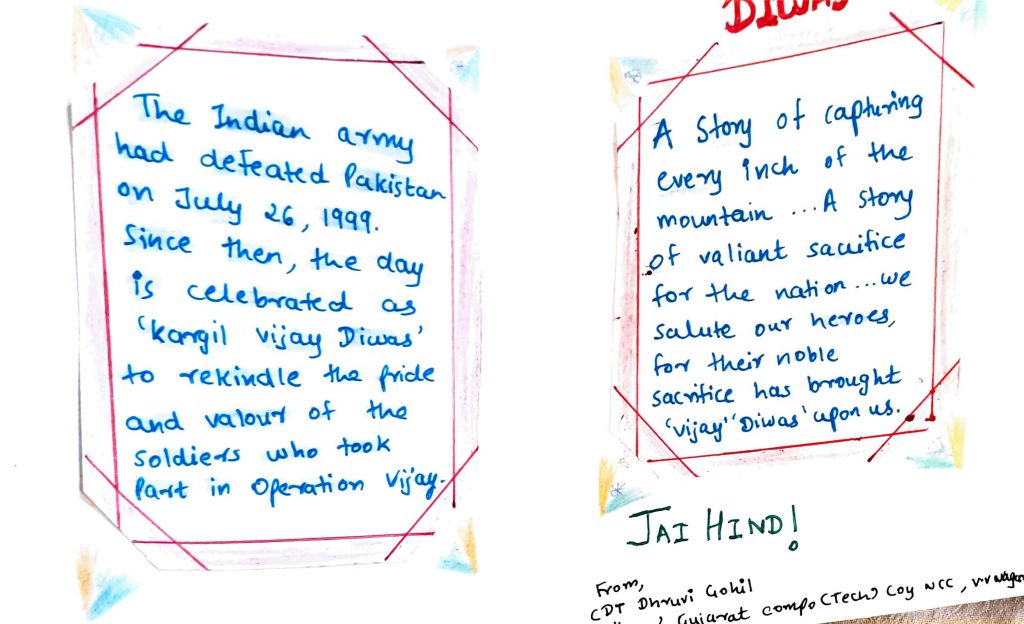 The Indian army
had defeated Pakistan
on July 26, 1999.
Since then, the day
is celebrated as
'Kargil vijay Diwas'
to rekindle the pride
and valour of the
soldiers who took
Part in Operation Vijay.
DIWAS
A Story of capturing
every inch of the
mountain ... A story
of valiant sacrifice
for the nation ... we
salute our heroes,
for their noble
sacrifice has brought
'vijay' 'Diwas' upon us.
JAI HIND!
From,
CDT Dhruvi Gohil
Gujarat compo (Tech) Coy NCC, v.v nagar